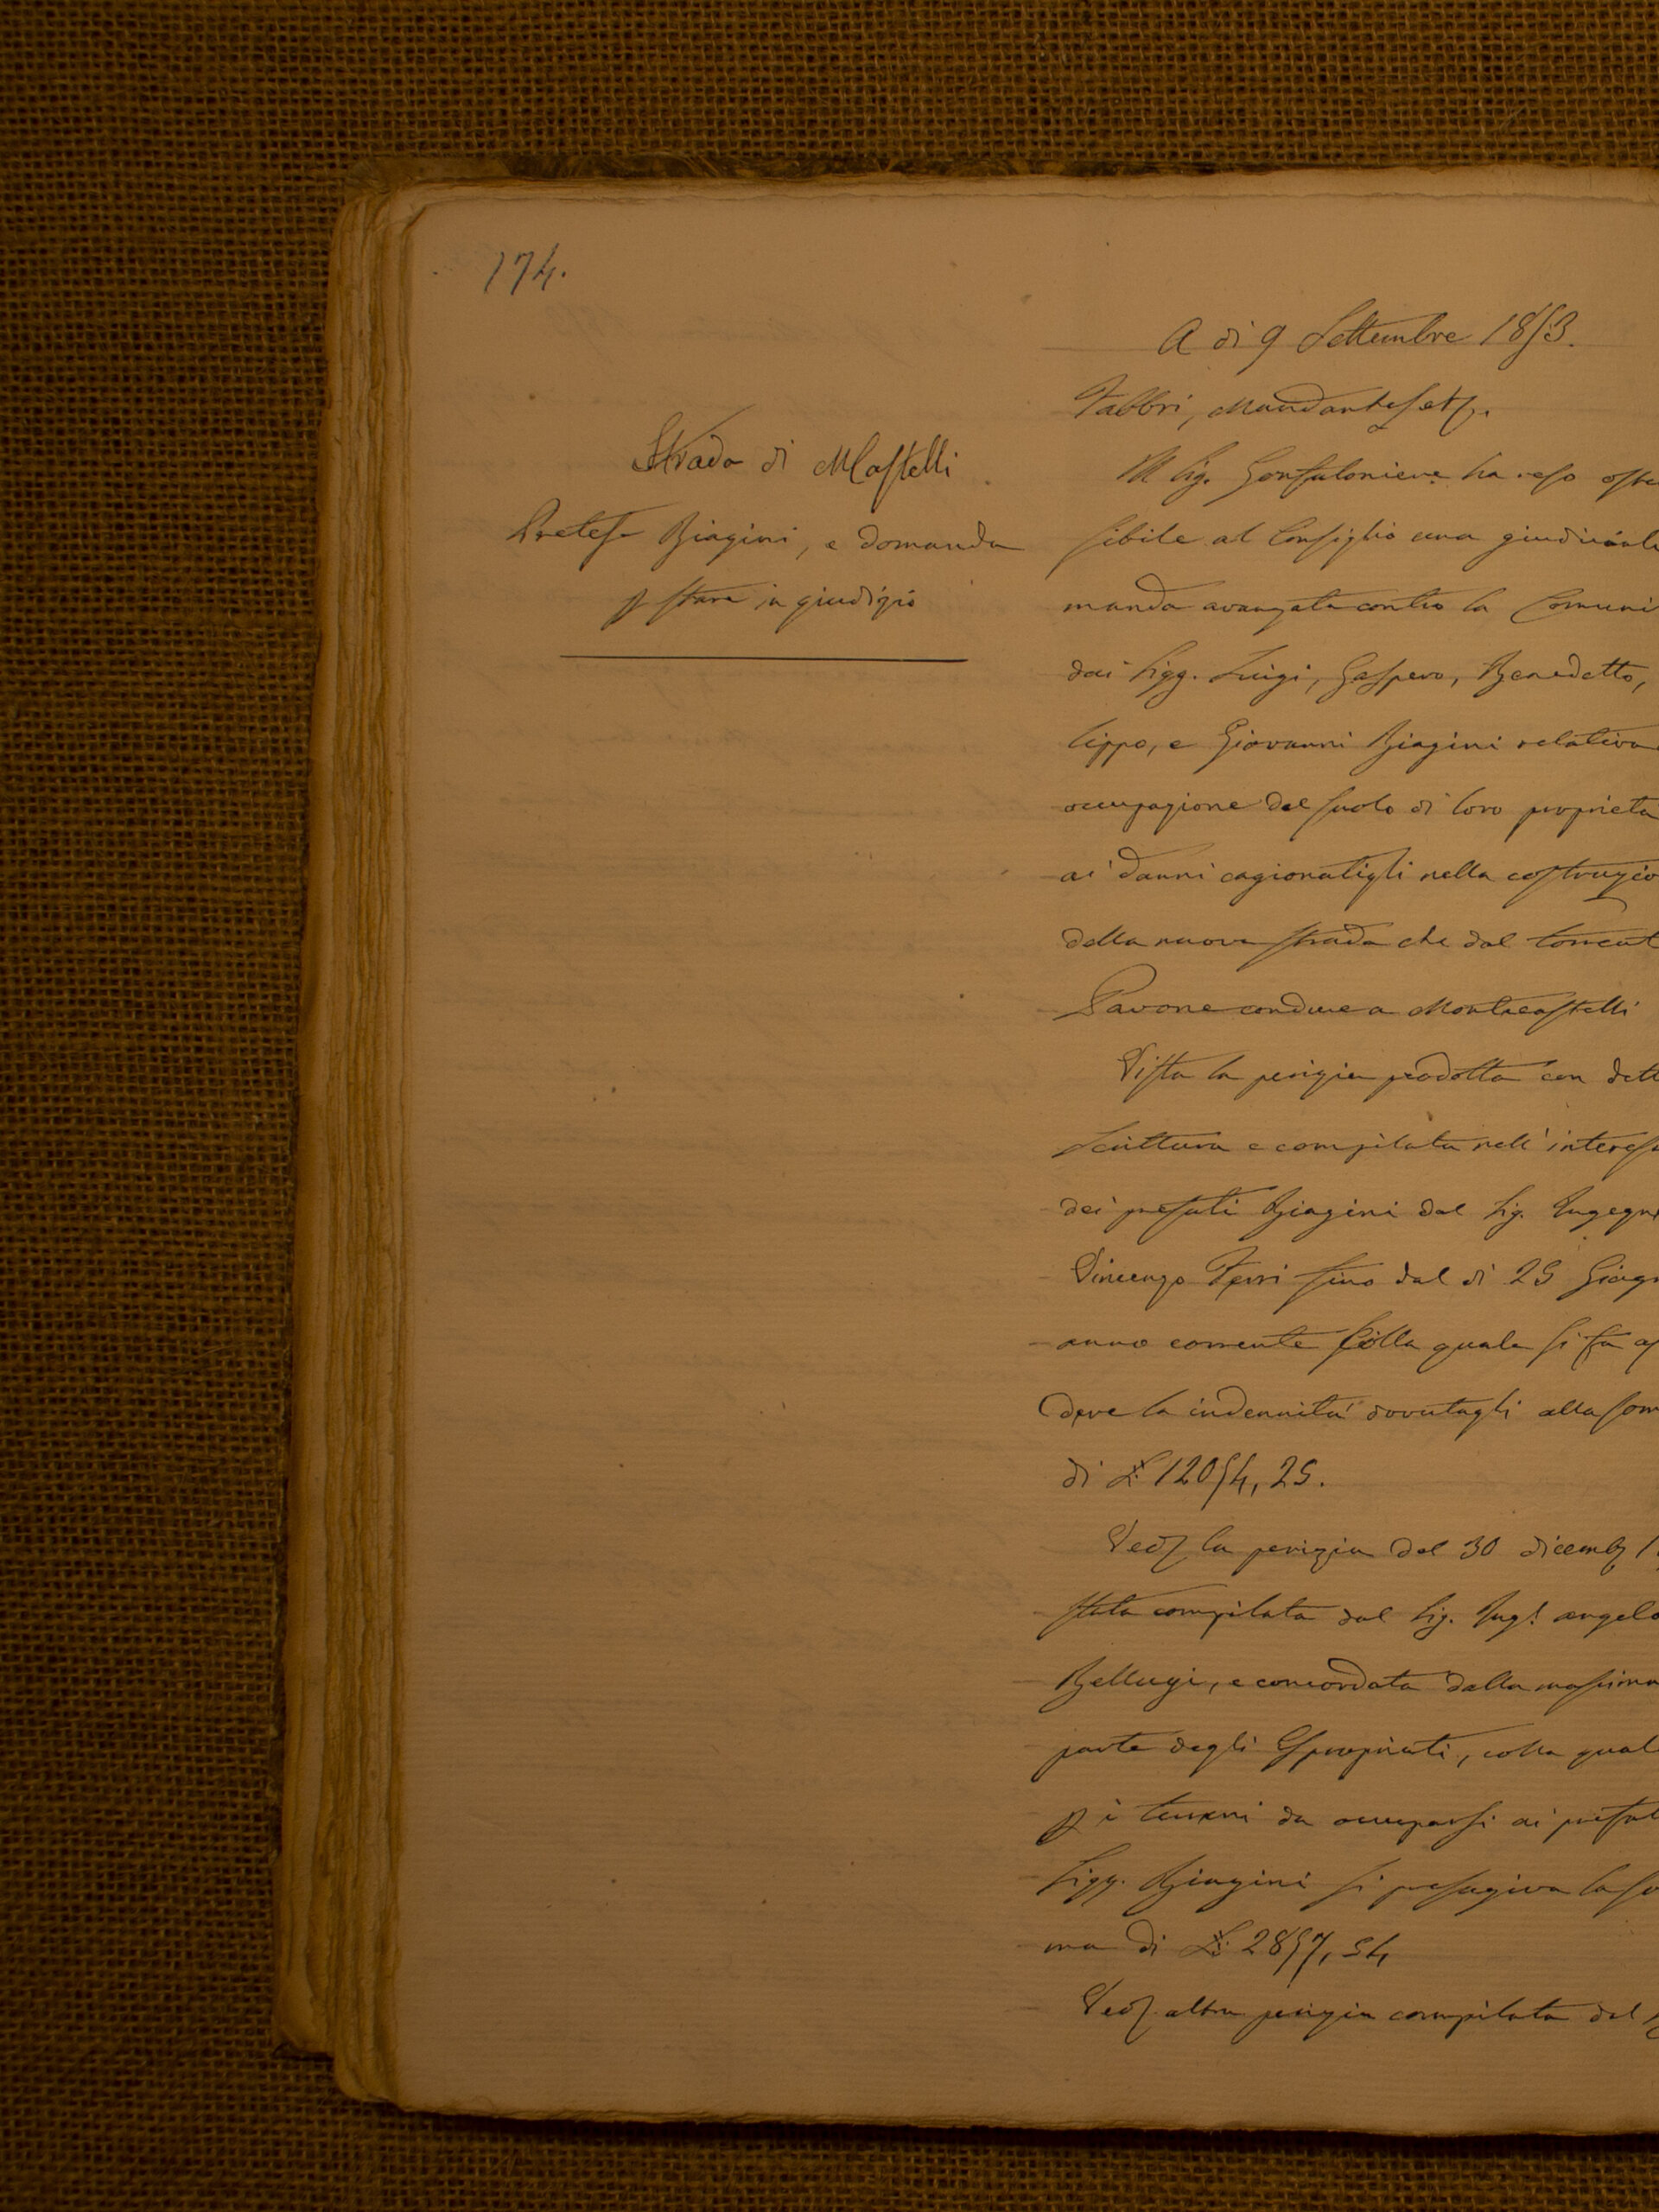 174.
A di 9 Settembre 1853.
Strada di MCastelli
Pretese Biagini, e domanda
p stare in giudizio
Fabbri, Mandantes et
Il Sig. Gonfaloniere ha reso oste
sibile al Consiglio una giudiciale
manda avanzata contro la Comuni
dai Sigg. Luigi, Gaspero, Benedetto,
lippo, e Giovanni Biagini relativa
occupazione del suolo di loro proprietà
ai danni cagionatigli nella costruzio
della nuova strada che dal torrent
Pavone conduce a Montecastelli
Vista la perizia prodotta con dett
Scrittura e compilata nell'interess
dei prefati Biagini dal Sig. Ingegne
Vincenzo Ferri fino dal di 25 Giug
anno corrente colla quale si fa as
dere la indennità dovutagli alla som
di £ 12054, 25.
Ved la perizia del 30 dicemb 1
stata compilata dal Sig. Ing. angelo
Bellugi, e concordata dalla massima
parte degli Espropriati, colla qual
p i terreni da occuparsi ai prefat
Sigg. Biagini si presagiva la so
ma di £ 2857, 54
Ved altra perizia compilata dal